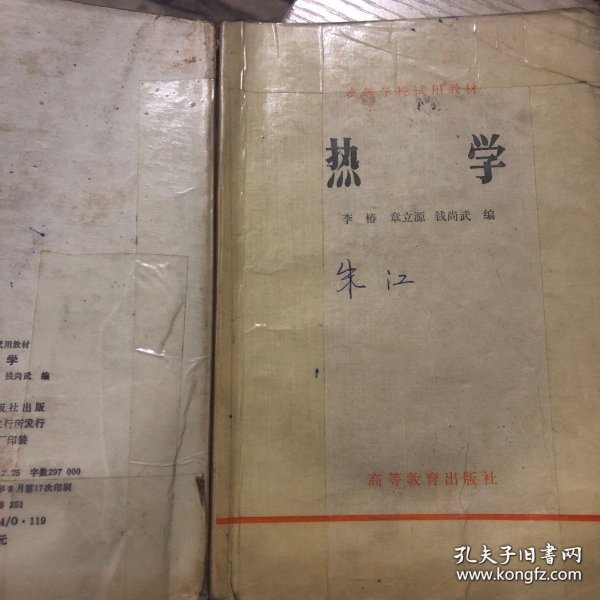 试用教材
学
钱尚武 编
版社出版
发行所发行
厂印装
2.25 字数397 000
年8月第17次印刷
251
4/O·119
元
高等学校试用教材
热 学
李椿 章立源 钱尚武 编
朱江
高等教育出版社
孔夫子旧书网
www.kongfz.com